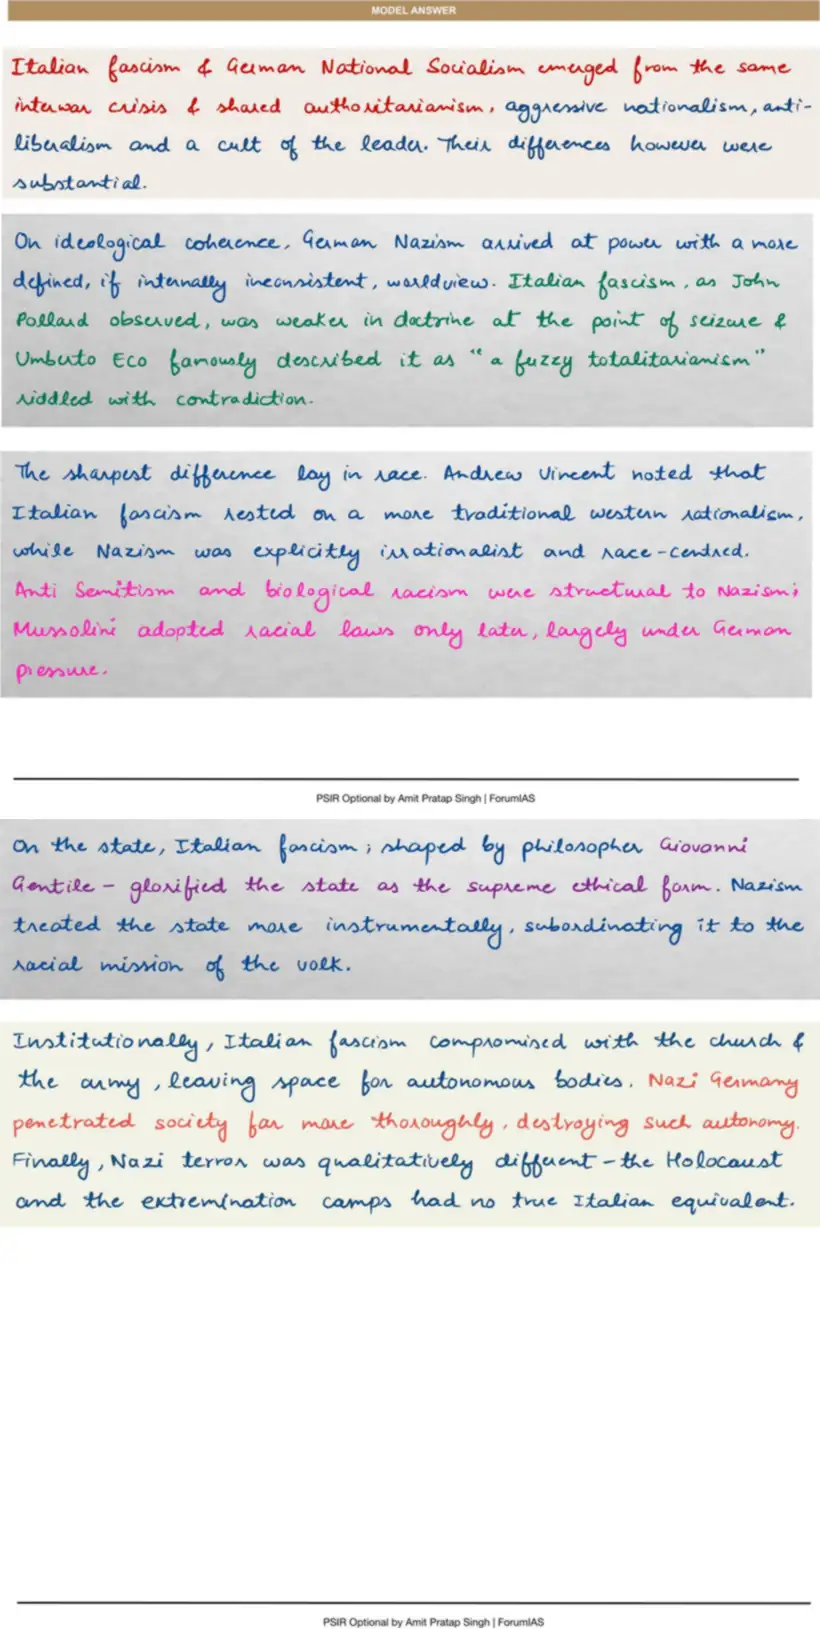 MODEL ANSWER
Italian fascism & German National Socialism emerged from the same
interwar crisis & shared authoritarianism, aggressive nationalism, anti-
liberalism and a cult of the leader. Their differences however were
substantial.
On ideological coherence, German Nazism arrived at power with a more
defined, if internally inconsistent, worldview. Italian fascism, as John
Pollard observed, was weaker in doctrine at the point of seizure &
Umberto Eco famously described it as "a fuzzy totalitarianism"
riddled with contradiction.
The sharpest difference lay in race. Andrew Vincent noted that
Italian fascism rested on a more traditional western rationalism,
while Nazism was explicitly irrationalist and race-centred.
Anti Semitism and biological racism were structural to Nazism;
Mussolini adopted racial laws only later, largely under German
pressure.
PSIR Optional by Amit Pratap Singh | ForumIAS
On the state, Italian fascism; shaped by philosopher Giovanni
Gentile – glorified the state as the supreme ethical form. Nazism
treated the state more instrumentally, subordinating it to the
racial mission of the volk.
Institutionally, Italian fascism compromised with the church &
the army, leaving space for autonomous bodies. Nazi Germany
penetrated society far more thoroughly, destroying such autonomy.
Finally, Nazi terror was qualitatively different – the Holocaust
and the extremination camps had no true Italian equivalent.
PSIR Optional by Amit Pratap Singh | ForumIAS